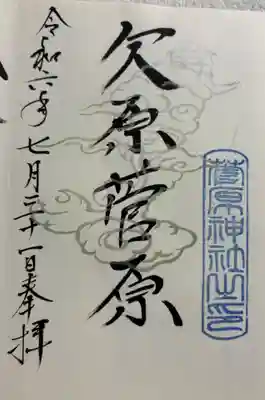 菅原神社之印
原菅原
令和六年七月三十一日奉拝